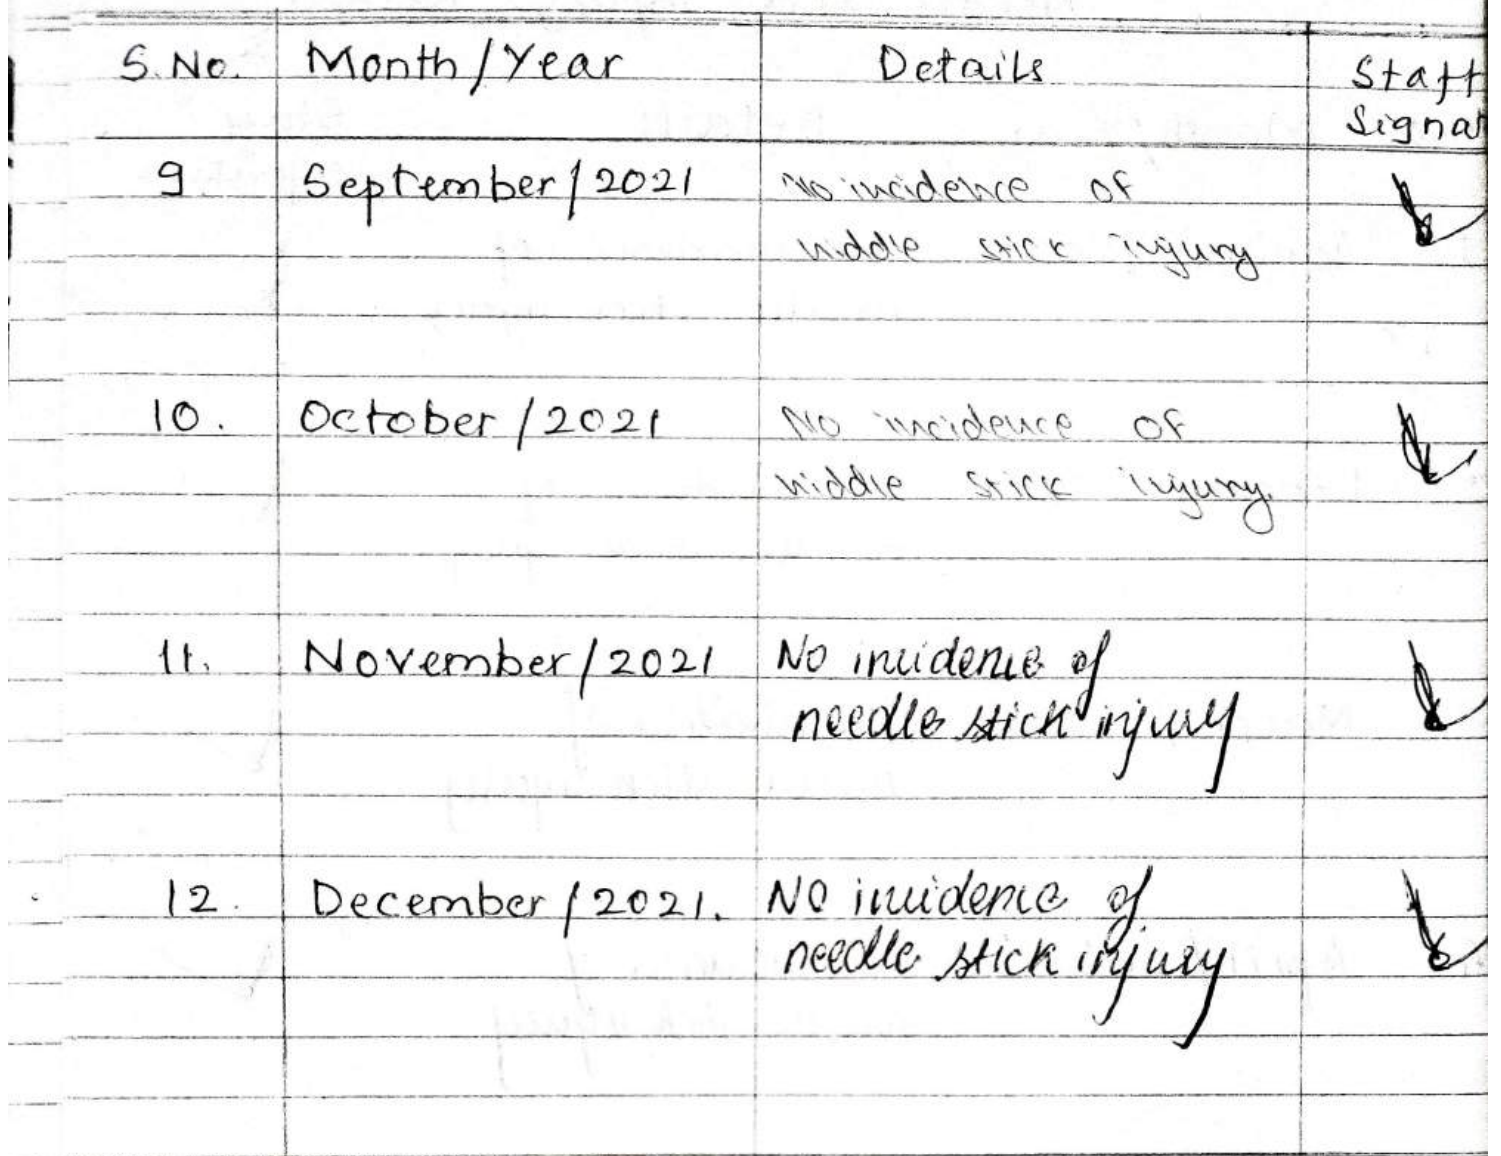 S.No. Month/Year Details Staff
Signat
9 September/2021 No incidence of
niddle stick injury
10. October/2021 No incidence of
niddle stick injury.
11. November/2021 No incidence of
needle stick injury
12. December/2021. No incidence of
needle stick injury